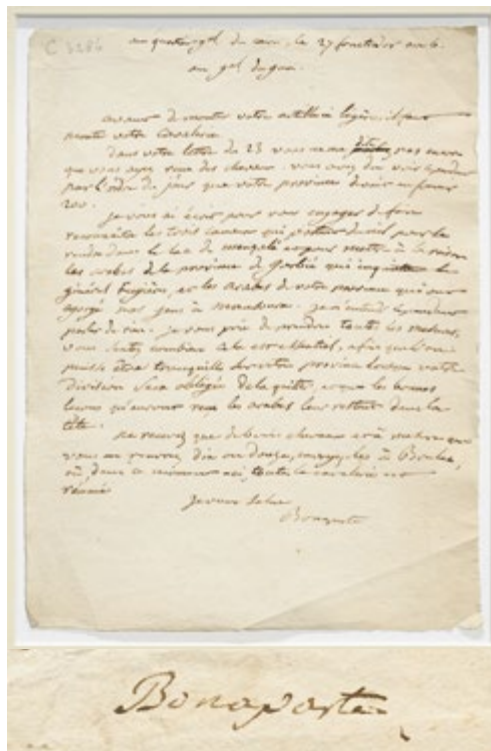 C 3286
au quartier gl. du caire, le 27 fructidor an 6.
au gal dugua.
avant de monter votre artillerie légère, il faut
monter votre cavalerie
Dans votre lettre du 23 vous ne me dites pas encore
que vous ayez reçu des chevaux. vous avez dû voir cependant
par l'ordre du jour que votre province devait en fournir
200.
je vous ai écrit pour vous engager de faire
reconnaître les trois canaux qui partent du nil pour se
rendre dans le lac de menzalé et pour mettre à la raison
les arabes de la province de Garbié qui inquiètent le
général Fugière, et les arabes de votre province qui ont
égorgé nos gens à mansoura. je n'entends cependant
parler de rien. je vous prie de prendre toutes les mesures,
vous sentez combien cela est essentiel, afin que l'on
puisse être tranquille dans votre province lorsque votre
division sera obligée de la quitter, et que les bonnes
leçons qu'auront reçu les arabes leur restent dans la
tête.
ne recevez que de bons chevaux et à mesure que
vous en recevrez dix ou douze, envoyez-les à Boulac,
où, dans ce moment-ci, toute la cavalerie est
réunie
Je vous salue
Bonaparte
Bonaparte